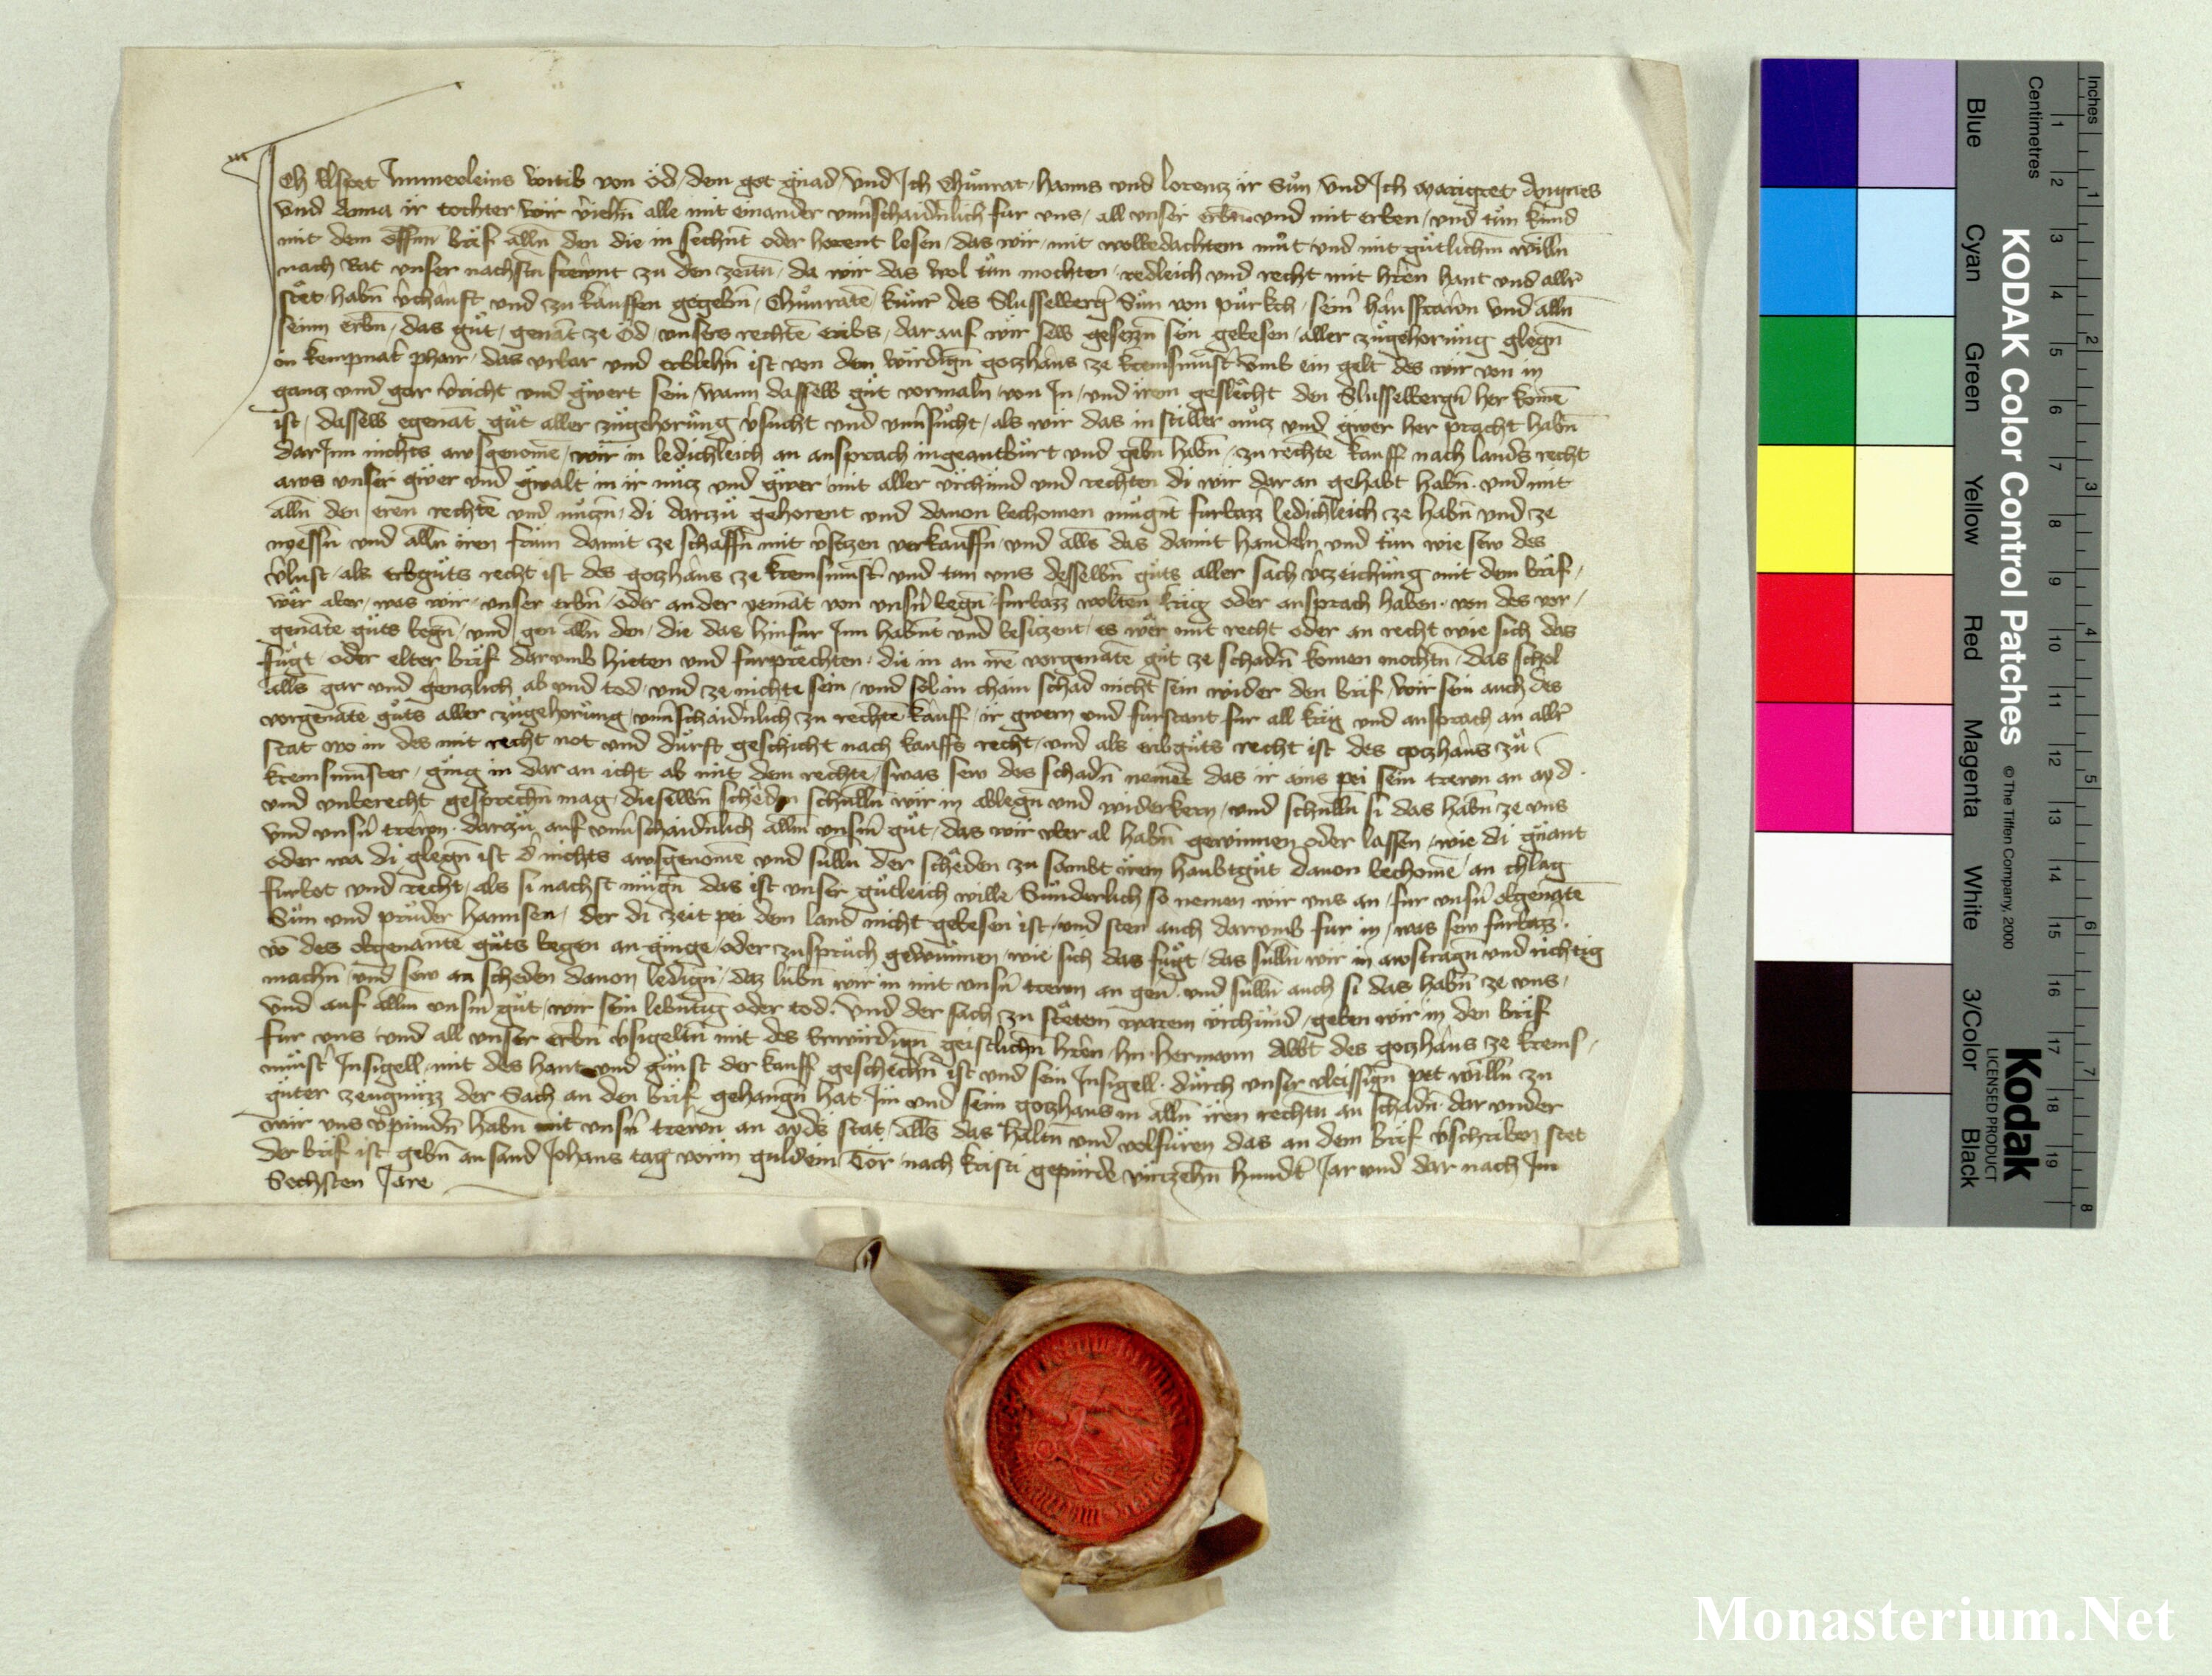 Ich Elspet Immerleins witib von Öd dem got gnad Und Ich Chunrat hanns und lorencz ir Sün Und Ich Margret Angnes
und Anna ir tochter wir viehn alle mit einander unuschaidnlich fur uns all unser erbn und mit erben und tün kund
mit dem offnn brif allen den die in sechnt oder horent lesen das wir mit wolbedachtem müt und mit gütlichm willn
nach Rat unser nachstn frewnt zu den zeitn da wir das wol tün mochten redleich und recht mit hrren hant und allr
stet habn vchauft und zu kauffen gegebn Chunraten des Slusselberg Sün von pürkch seinr hausfrawn und alln
seinn erbn das güt genant ze Öd unsers rechten eribs dar auf wir sew gesezzn sein gebesen aller zügehorung glegn
in kempnatr pharr das urbar und erblehn ist von dem wirdign goczhaus ze kremsmunstr umb ein gelt des wir von in
gancz und gar vricht und gwert sein wann dasselb güt vormaln von In und irem geslächt den Slusselbergn her komen
ist dasselb egenant güt aller zügehorung vsücht und unusücht als wir das in stiller nücz und gwer her pracht habn
dar Inn nichts awsgenomen wir in ledichleich an ansprach ingeantburt und gebn habn zu rechte kauff nach lands recht
aws unser gwer und gwalt in ir nücz und gwer mit aller urchünd und rechten di wir dar an gehabt habn und mit
alln den eren rechten und nüczn di darzü gehorent und davon bechomen mügnt furbazz ledichleich ze habn und ze
nyessn und alln iren frum damit ze schaffn mit vseczen verkauffn und alls das damit handeln und tün wie sew des
vlust als erbgüts recht ist des goczhaus ze kremsmunstr und tün uns desselbn güts aller sach vczeichung mit dem brif
wer aber was wir unser erbn oder ander yemant von unsrn wegn furbazz wolten krig oder ansprach haben von des vor
genante güts wegn und gen alln den die das hinfur Inn habnt und besiczent es wer mit recht oder an recht wie sich das
fügt oder elter brif darumb hieten und furprechten die in an ire vorgenante güt ze schadn komen mochtn das schol
alls gar und genczlich ab und tod und ze nichte sein und sol in chain schad nicht sein wider den brif wir sein auch des
vorgenante güts aller zügehorung unuschaidnlich zu rechte kauff ir gwern und furstant fur all krig und ansprach an allr
stat wo in des mit recht not und dürft geschicht nach kauffs recht und als erbgüts recht ist des goczhaus zü
kremsmunster ging in dar an icht ab mit dem rechte swas sew des schadn nement das ir ains pei sein trewn an ayd
und unberecht gesprechn mag dieselbn schedn schulln wir in ablegn und widerkern und schulln si das habn ze uns
und unsrn trewn darzü auf unuschaidnlich allm unsrm güt das wir uber al habn gewinnen oder lassen wie di gnant
oder wa di glegn ist nichts awsgenome und sulln der scheden zu sambt irem haubtgüt davon bechome an chlag
furbot und recht als si nachst mügn das ist unser gütleich wille Sunderlich so nemen wir uns an fur unsrn obgenante
Sün und prüder hannsen der di zeit pei dem land nicht gebesen ist und sten auch darumb fur in was sew furbazz
von des obgenante güts wegen an ginge oder zusprüch gewunnen wie sich das fügt das sulln wir in awstragn und richtig
machn und sew an scheden davon ledign daz lubn wir in mit unsrn trewn an gen und sulln auch si das habn ze uns
und auf allm unsrm güt wir sein lebntig oder tod Und der sach zu stetem warem urchünd geben wir in den brif
fur uns und all unser erbn vsigeltn mit des Erwirdign geistlichn hrren hn hermann Abbt des goczhaus ze krems
munstr Insigell mit des hant und günst der kauff geschechn ist und sein Insigell durch unser vleissign pet willn zu
güter zeugnüzz der sach an den brif gehangn hat Im und seim goczhaus in alln iren rechtn an schadn dar under
wir uns vpindn habn mit unsrn trewn an ayds stat alls das haltn und volfüren das an dem brif vschriben stet
der brif ist gebn an sand Johans tag vorm guldem Tor nach kristi gepürde virczehn hundt Jar und dar nach Im
Sechsten Jare
KODAK Color Control Patches © The Tiffen Company, 2000
Kodak
LICENSED PRODUCT
Blue Cyan Green Yellow Red Magenta White 3/Color Black
Centimetres 1 2 3 4 5 6 7 8 9 10 11 12 13 14 15 16 17 18 19
Inches 1 2 3 4 5 6 7 8
Monasterium.Net